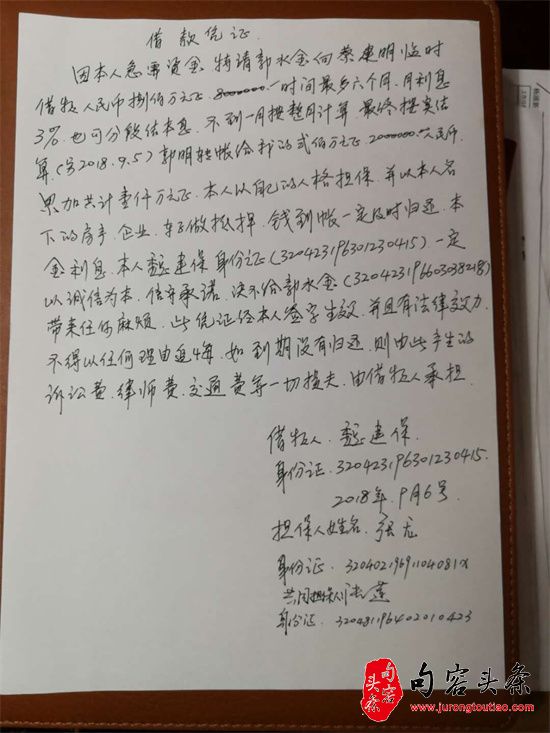 借款凭证
因本人急需资金,特请郭水金向蔡建明临时
借款人民币捌佰万元正.8000000.一时间最多六个月.月利息
3%.也可分段结本息.不到一月按整月计算.最终按实结
算.(与2018.9.5)郭明转帐给我的弍佰万元正.2000000.人民币.
累加共计壹仟万元正.本人以自己的人格担保.并以本人名
下的房产.企业.车子做抵押.钱到帐一定及时归还.本
金利息.本人 建保身份证(320423196301230415)一定
以诚信为本.信守承诺.决不给郭水金(320423196603038218)
带来任何麻烦.此凭证经本人签字生效.并且有法律效力.
不得以任何理由追悔.如到期没有归还.则由此产生的
诉讼费.律师费.交通费等一切损失.由借款人承担.
借款人. 建保.
身份证.320423196301230415.
2018年.9月6号
担保人姓名.张龙
身份证.32040219691104081X
共同担保人
身份证.320481196402010423
句容头条
头条
句容
www.jurongtoutiao.com